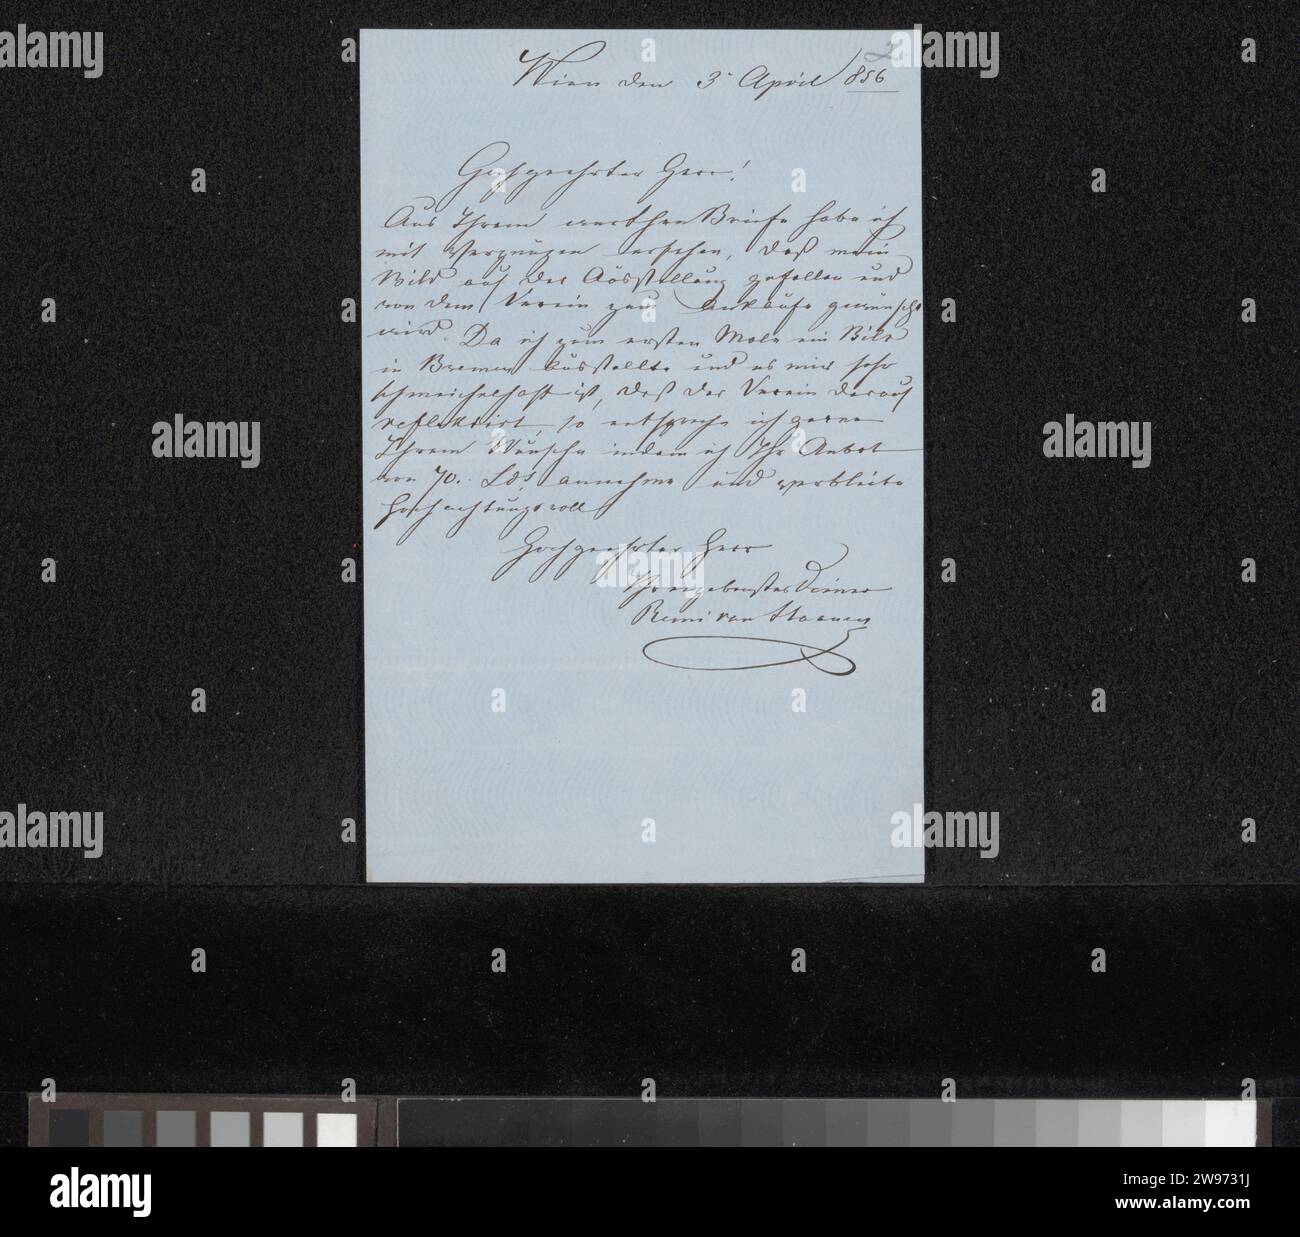 2
Wien den 3t April 856
Hochgeehrter Herr!
Aus Ihrem werthen Briefe habe ich
mit Vergnügen ersehen, daß mein
Bild auf der Ausstellung gefallen und
von dem Verein zum Ankaufe gewünscht
wird. Da ich zum ersten Male ein Bild
in Bremen ausstellte und es mir sehr
schmeichelhaft ist, daß der Verein darauf
reflektirt, so entspreche ich gerne
Ihrem Wunsche indem ich Ihr Anbot
von 70. Lds annehme und verbleibe
hochachtungsvoll
Hochgeehrter Herr
Ihr ergebenster Diener
Remi van Haanen
alamy
Image ID: 2W9731J
www.alamy.com